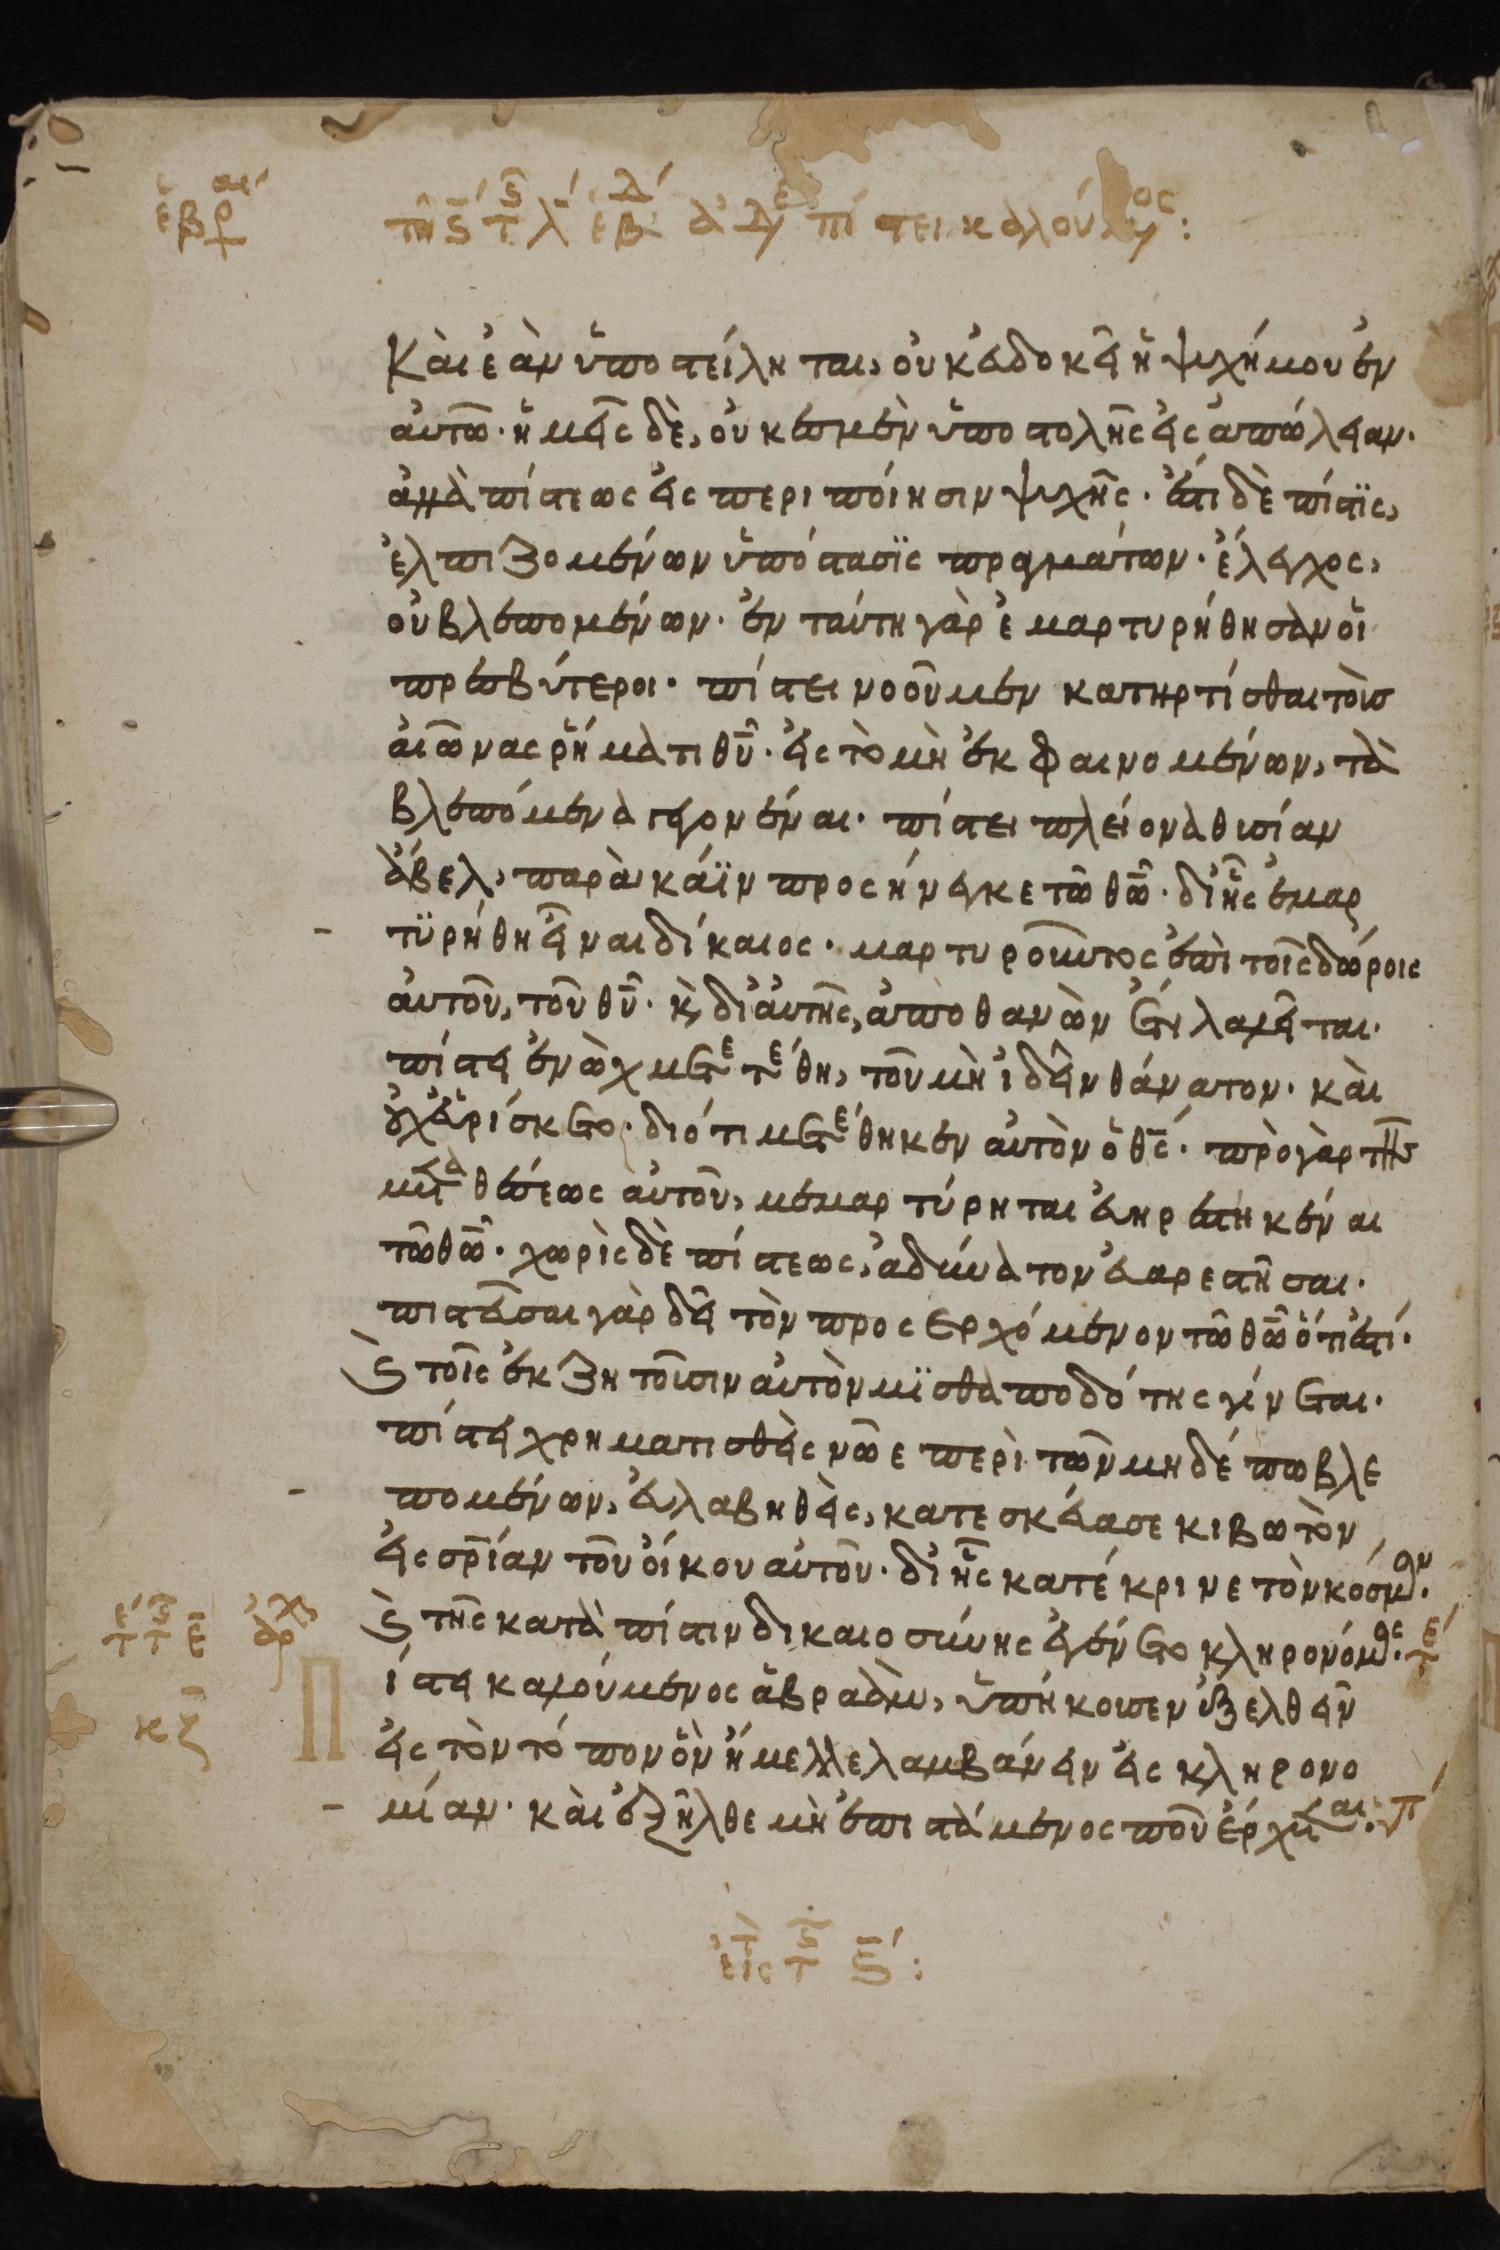 ἑβρ αι
τῆ ϛ τ λ ἑβδ ἀδε πίστει καλούμος:
Καὶ ἐὰν ὑποστείληται, οὐκ εὐδοκεῖ ἡ ψυχή μου ἐν
αὐτῶ· ἡμεῖς δὲ, οὐκ ἐσμὲν ὑποστολῆς εἰς ἀπώλειαν·
ἀλλὰ πίστεως εἰς περιποίησιν ψυχῆς· ἔστι δὲ πίστϊς,
ἐλπιζομένων ὑπόστασϊς πραγμάτων· ἔλεγχος,
οὐ βλεπομένων· ἐν ταύτη γὰρ ἐμαρτυρήθησαν οἱ
πρεσβύτεροι· πίστει νοοῦμεν κατηρτίσθαι τοὺσ
αἰῶνας ῥήματι θῦ· εἰς τὸ μὴ ἐκ φαινομένων, τὰ
βλεπόμενα γεγονέναι· πίστει πλείονα θυσίαν
ἄβελ, παρὰ κάϊν προσήνεγκε τῶ θῶ· δι᾿ ἧς ἐμαρ
τϋρήθη εἶναι δίκαιος· μαρτυροῦντος ἐπὶ τοῖς δώροις
αὐτοῦ, τοῦ θῦ· κ̀ δι᾿ αὐτῆς, ἀποθανὼν ἔτι λαλεῖται·
πίστει ἐνὼχ μετετέθη, τοῦ μὴ ἰδεῖν θάνατον· καὶ
οὐχ εὑρίσκετο· διότι μετέθηκεν αὐτὸν ὁ θς· πρὸ γὰρ τῆσ
μεταθέσεως αὐτοῦ, μεμαρτύρηται εὐηρεστηκέναι
τῶ θῶ· χωρὶς δὲ πίστεως, ἀδύνατον εὐαρεστῆσαι·
πιστεῦσαι γὰρ δεῖ τὸν προσερχόμενον τῶ θῶ ὅτι ἐστί·
ϛ̀ τοῖς ἐκζητοῦσιν αὐτὸν μϊσθαποδότης γίνεται·
πίστει χρηματισθεὶς νῶε περὶ τῶν μηδέπω βλε
πομένων, εὐλαβηθεὶς, κατεσκεύασε κιβωτὸν
εἰς σρίαν τοῦ οἴκου αὐτοῦ· δι᾿ ἧς κατέκρινε τὸν κόσμον·
ϛ̀ τῆς κατὰ πίστιν δικαιοσύνης ἐγένετο κληρονόμος· τε
τ τ ε ἀρχ
ίστει καλούμενος ἀβραὰμ, ὑπήκουσεν ἐξελθεῖν
κζ Π
εἰς τὸν τόπον ὃν ἤμελλε λαμβάνειν εἰς κληρονο
μίαν· καὶ ἐξῆλθε μὴ ἐπιστάμενος ποῦ ἔρχεται· π
εἰς τ ϛ ξ: